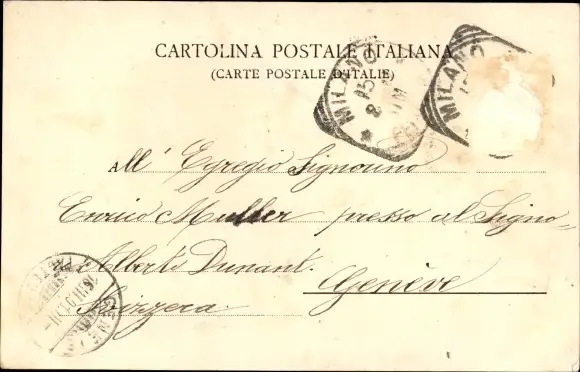 CARTOLINA POSTALE ITALIANA
(CARTE POSTALE D'ITALIE)
MILANO
15
8
MILANO
All' Egregio Signorino
Enrico Muller presso al Signo-
Alberto Dunant.
Genève
Svizzera